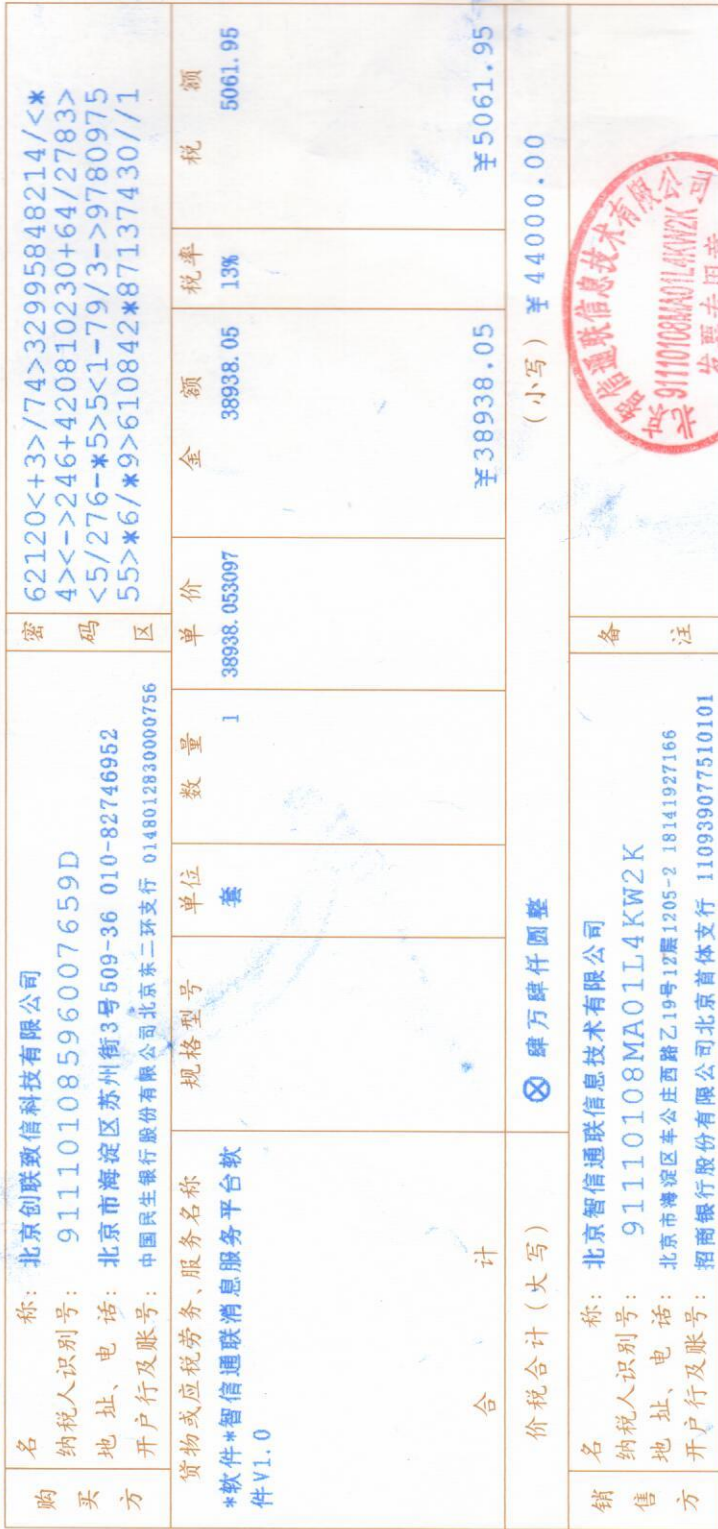 购买方
名 称: 北京创联致信科技有限公司
纳税人识别号: 91110108596007659D
地 址、电 话: 北京市海淀区苏州街3号509-36 010-82746952
开户行及账号: 中国民生银行股份有限公司北京东二环支行 0148012830000756
密码区
62120<+3>/74>32995848214/<*
4><->246+420810230+64/2783>
<5/276-*5>5<1-79/3->9780975
55>*6/*9>610842*87137430//1
货物或应税劳务、服务名称 规格型号 单位 数 量 单 价 金 额 税率 税 额
*软件*智信通联消息服务平台软 套 1 38938.053097 38938.05 13% 5061.95
件V1.0
合 计 ¥38938.05 ¥5061.95
价税合计(大写) ⊗ 肆万肆仟圆整 (小写) ¥44000.00
销售方
名 称: 北京智信通联信息技术有限公司
纳税人识别号: 91110108MA01L4KW2K
地 址、电 话: 北京市海淀区车公庄西路乙19号12层1205-2 18141927166
开户行及账号: 招商银行股份有限公司北京首体支行 110939077510101
备注
北京智信通联信息技术有限公司
91110108MA01L4KW2K
发票专用章